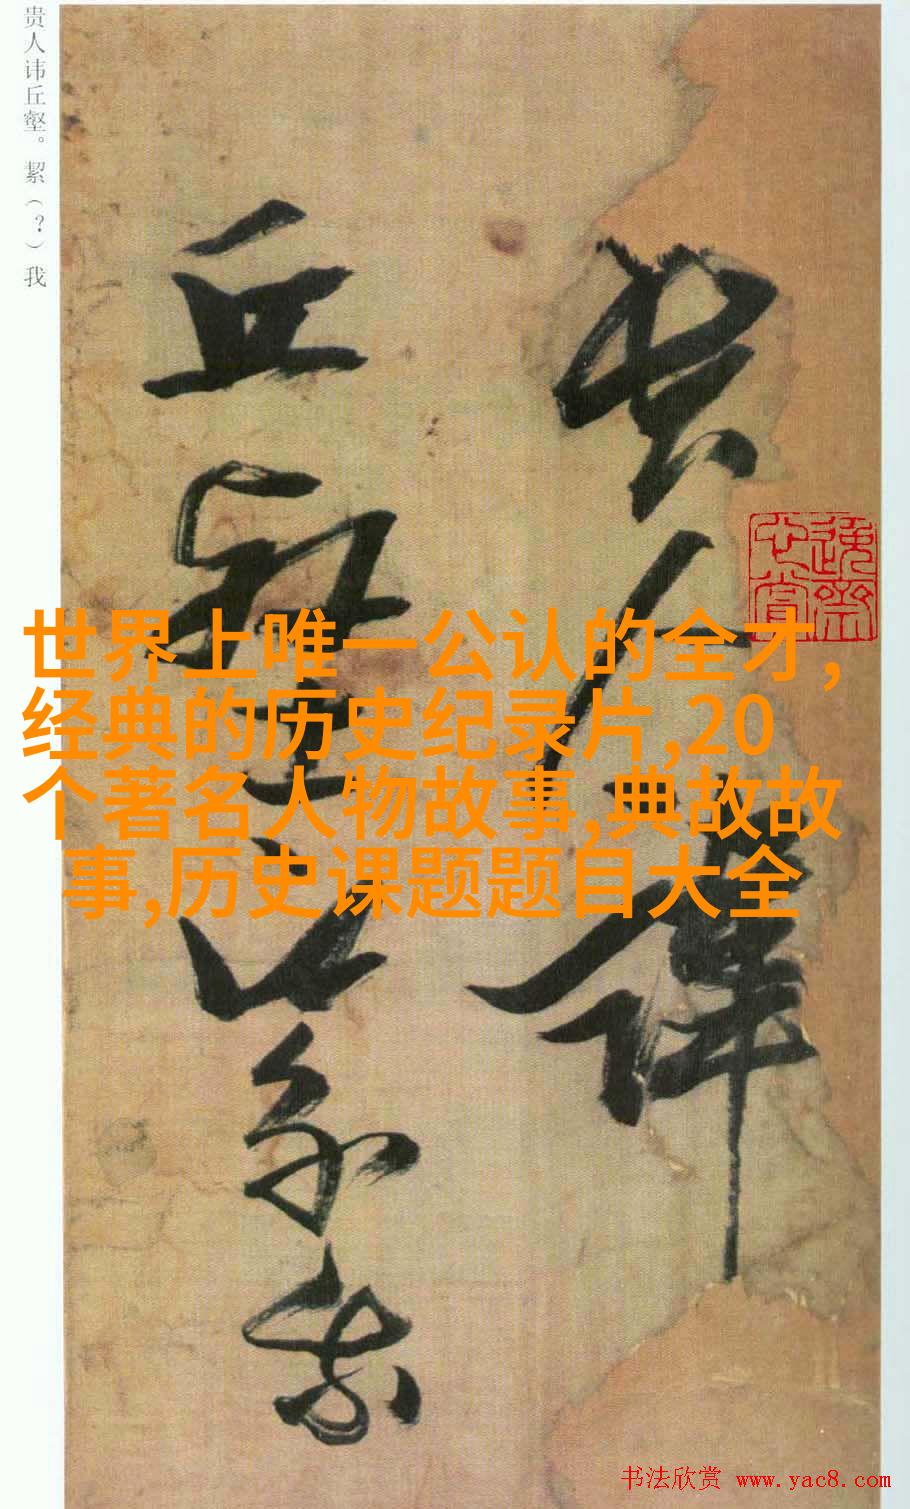 贵人讳丘壑。絜（？）我
贵人讳
丘壑之以絜我
世界上唯一公认的全才,
经典的历史纪录片,20
个著名人物故事,典故故
事,历史课题题目大全
书法欣赏 www.yac8.com